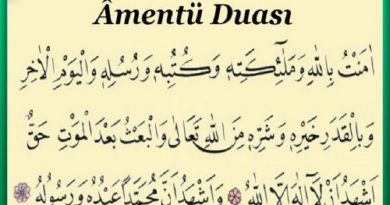 Âmentü Duası
اٰمَنْتُ بِاللّٰهِ وَمَلٰٓئِكَتِهٖ وَكُتُبِهٖ وَرُسُلِهٖ وَالْيَوْمِ الْاٰخِرِ
وَبِالْقَدَرِ خَيْرِهٖ وَشَرِّهٖ مِنَ اللّٰهِ تَعَالٰى وَالْبَعْثُ بَعْدَ الْمَوْتِ حَقٌّ
اَشْهَدُ اَنْ لَٓا اِلٰهَ اِلَّا اللّٰهُ وَاَشْهَدُ اَنَّ مُحَمَّدًا عَبْدُهُ وَرَسُولُهُ